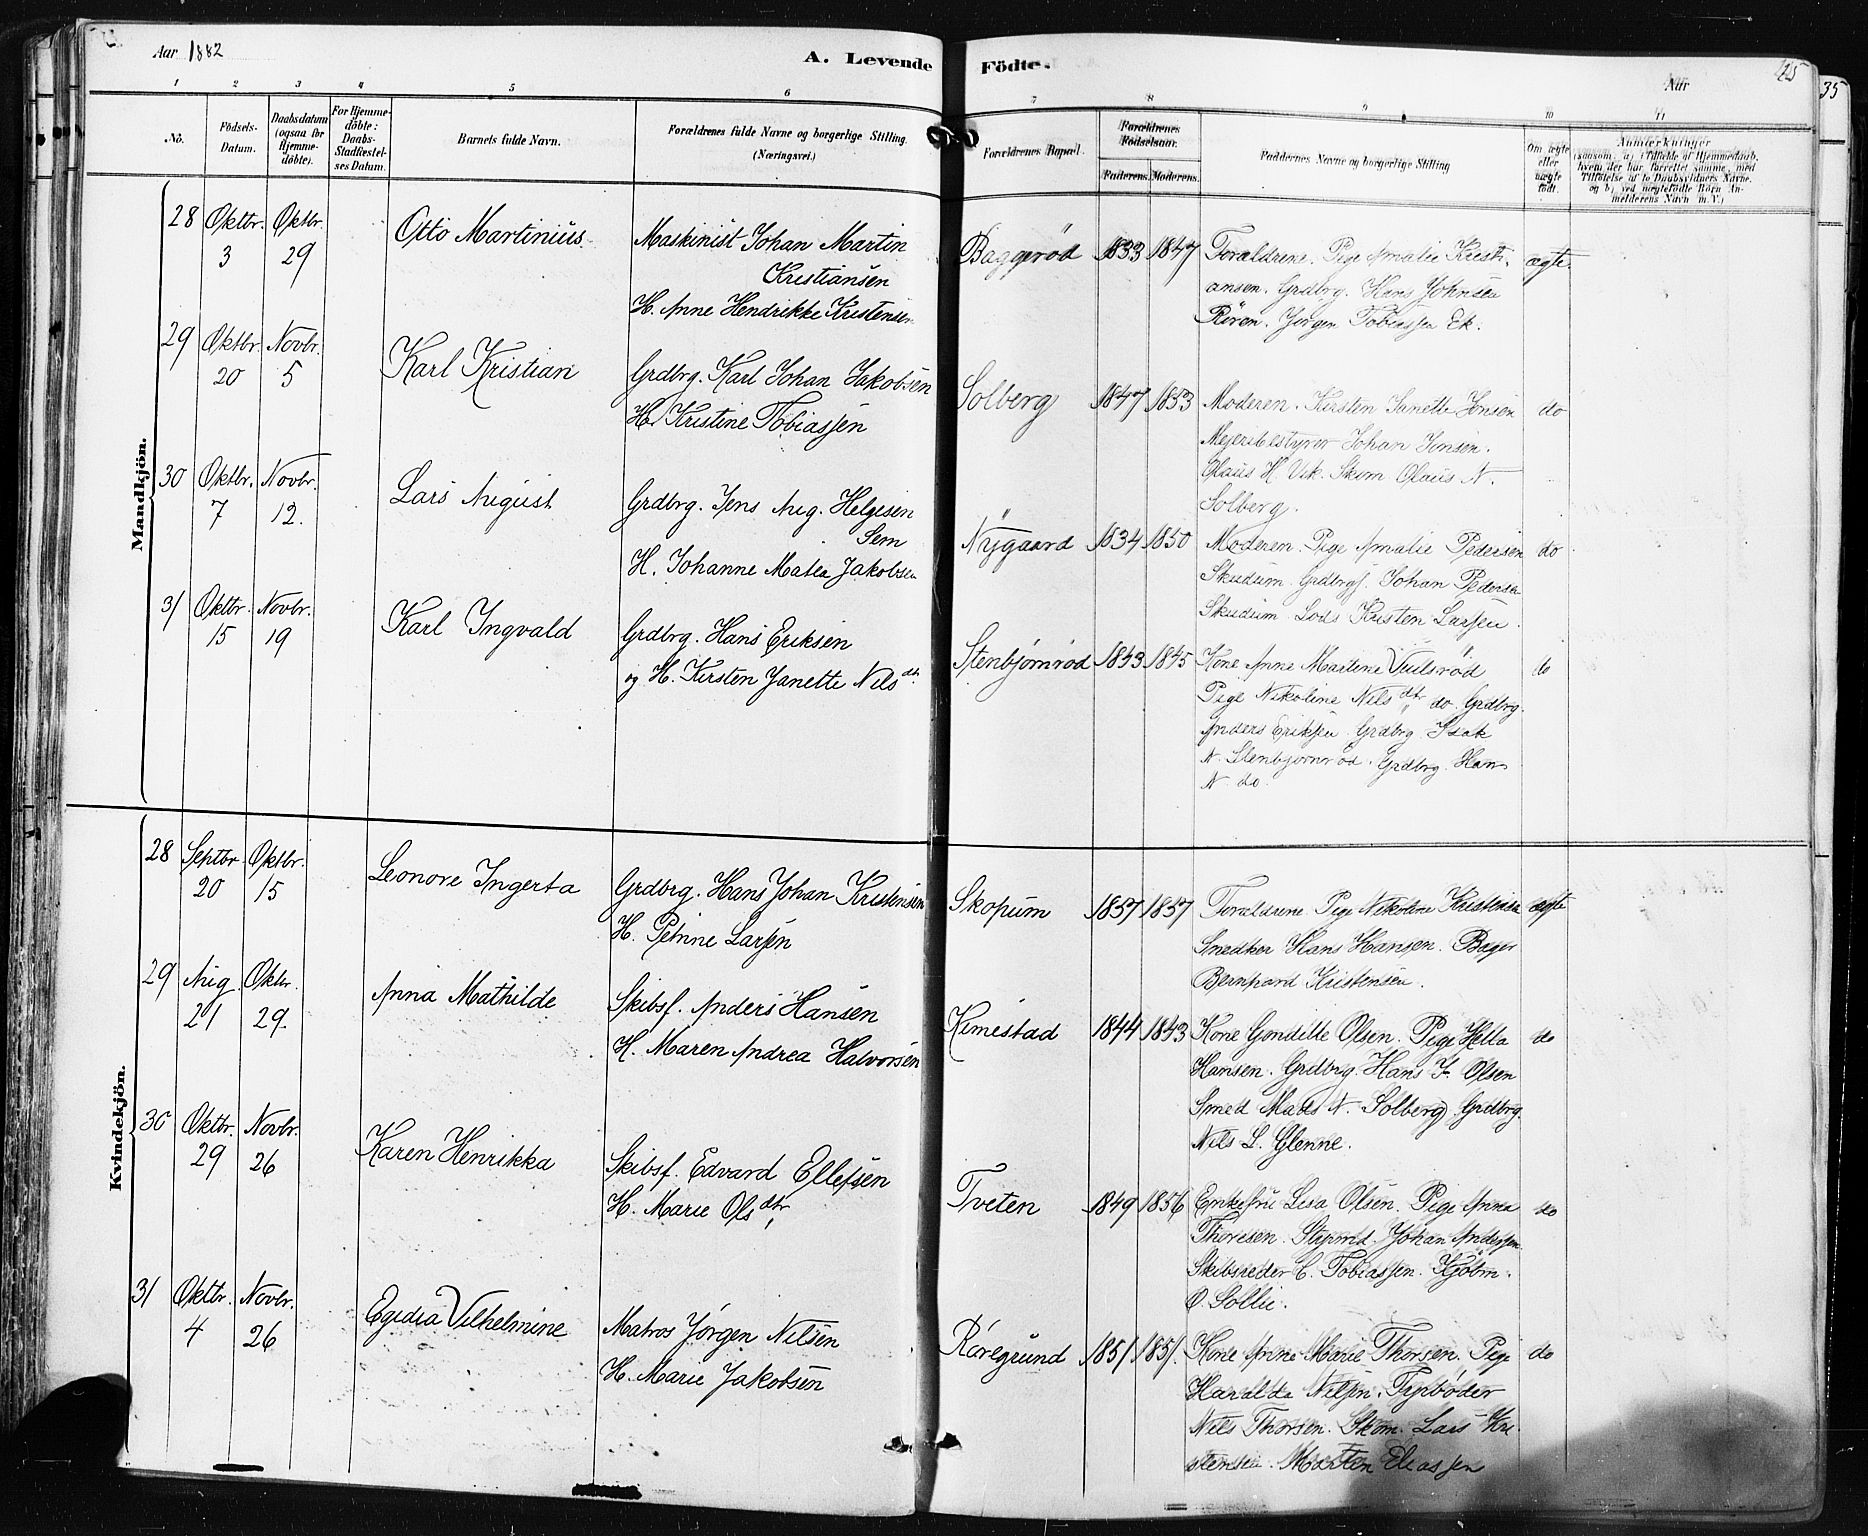 Aar 1882
A. Levende Födte.
Aar
35
1 2 3 4 5 6 7 8 9 10 11
No.
Födsels-Datum.
Daabsdatum (ogsaa for Hjemme-döbte).
For Hjemme-döbte: Daabs-Stadfæstel-ses Datum.
Barnets fulde Navn.
Forældrenes fulde Navne og borgerlige Stilling (Næringsvei.)
Forældrenes Bopæl.
Forældrenes Födselsaar.
Faderens. Moderens.
Faddernes Navne og borgerlige Stilling
Om ægte eller uægte födt.
Anmærkninger (saasom: a) i Tilfælde af Hjemmedaab, hvem der har forrettet samme, med Tilföielse af to Daabsvidners Navne, og b) ved uægtefödte Börn An-melderens Navn m. V.)
Mandkjön.
28 Oktbr. 3 Oktbr. 29 Otto Martinius
Maskinist Johan Martin
Kristiansen
H. Anne Hendrikke Kristensen
Baggerød 1833 1847
Forældrene. Pige Amalie Kristi-
ansen. Grdbrg. Hans Johnsen
Røren. Jørgen Tobiassen Ek.
ægte.
29 Oktbr. 20 Novbr. 5 Karl Kristian
Grdbrg. Karl Johan Jakobsen
H. Kristine Tobiassen
Solberg 1847 1853
Moderen. Kirsten Janette Jonsen
Mejeribestyrer Johan Jonsen.
Olaus H. Vik. Skom Olaus N.
Solberg.
do
30 Oktbr. 7 Novbr. 12. Lars August
Grdbrg. Jens Aug. Helgesen
Sem
H. Johanne Matea Jakobsen
Nygaard 1834 1850
Moderen. Pige Amalie Pedersen
Skudum. Grdbrgs. Johan Pedersen
Skudum. Lods Kristen Larsen.
do
31 Oktbr. 15 Novbr. 19 Karl Ingvald
Grdbrg. Hans Eriksen
og H. Kirsten Janette Nilsdtr.
Stenbjørnrød 1843 1845
Kone Anne Martine
Pige Nikoline Nilsdtr. do. Grdbrg.
Anders Eriksen. Grdbrg. Isak
N. Stenbjørnrød. Grdbrg. Hans
N. do.
do
Kvindekjön.
28 Septbr. 20 Oktbr. 15 Leonore Ingerta
Grdbrg. Hans Johan Kristensen
H. Petrine Larsen
Skopum 1857 1857
Forældrene. Pige Nikoline Kristensen
Snedker Hans Hansen. Bager
Bernhard Kristensen.
ægte
29 Aug. 21 Oktbr. 29. Anna Mathilde
Skibsf. Anders Hansen
H. Maren Andrea Halvorsen
Kimestad 1844 1843
Kone Gondille Olsen. Pige Hella
Hansen. Grdbrg. Hans J. Olsen
Smed Mads N. Solberg. Grdbrg.
Nils L. Glenne.
do
30 Oktbr. 29 Novbr. 26 Karen Henrikka
Skibsf. Edvard Ellefsen
H. Marie Olsdtr.
Tveten 1849 1856
Enkefru Lisa Olsen. Pige Anna
Thoresen. Styrmd. Johan Andersen.
Skibsreder C. Tobiassen. Kjøbm.
O. Sollie.
do
31 Oktbr. 4 Novbr. 26 Egidia Vilhelmine
Matros Jørgen Nilsen
H. Marie Jakobsen
Røregrund 1851 1851.
Kone Anne Marie Thorsen. Pige
Haralda Nilsen. Fyrbøder
Nils Thorsen. Skom. Lars Kri-
stensen. Martin Eliassen
do